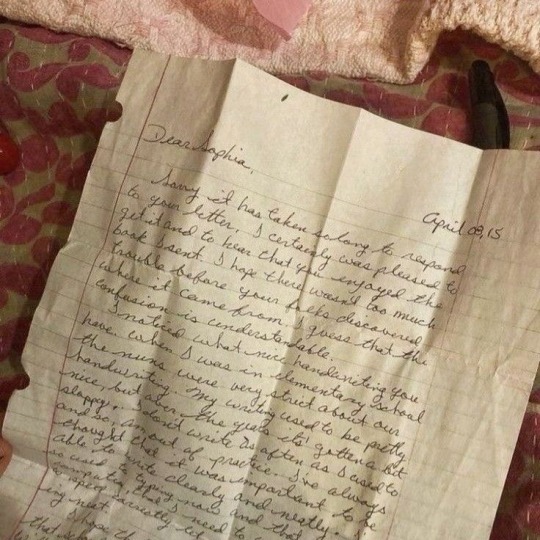 Dear Sophia,
April 08, 15
Sorry it has taken so long to respond
to your letter. I certainly was pleased to
get it and to hear that you enjoyed the
book I sent. I hope there wasn't too much
trouble before your folks discovered
where it came from. I guess that the
confusion is understandable.
I noticed what nice handwriting you
have. When I was in elementary school
the nuns were very strict about our
handwriting. My writing used to be pretty
nice, but over the years it's gotten a bit
sloppy. I don't write as often as I used to
and so, am out of practice. I've always
thought that it was important to be
able to write clearly and neatly.
so used to typing now and that
computer, that I need to
I hope th
that